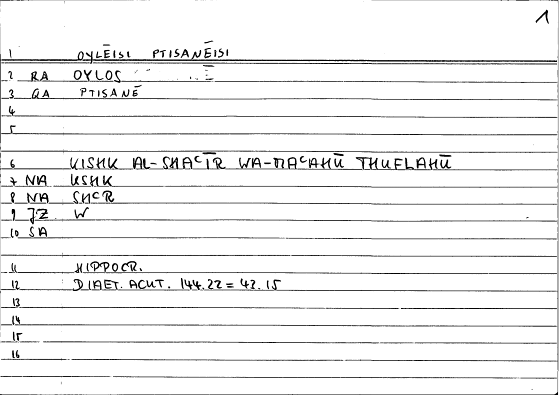 1
1 OYLĒISI PTISANĒISI
2 RA OYLOS
3 QA PTISANĒ
4
5
6 KISHK AL-SHAᶜĪR WA-MAᶜAHŪ THUFLAHŪ
7 NA KSHK
8 NA SHᶜR
9 JZ W
10 SA
11 HIPPOCR.
12 DIAET. ACUT. 144.22 = 42.15
13
14
15
16